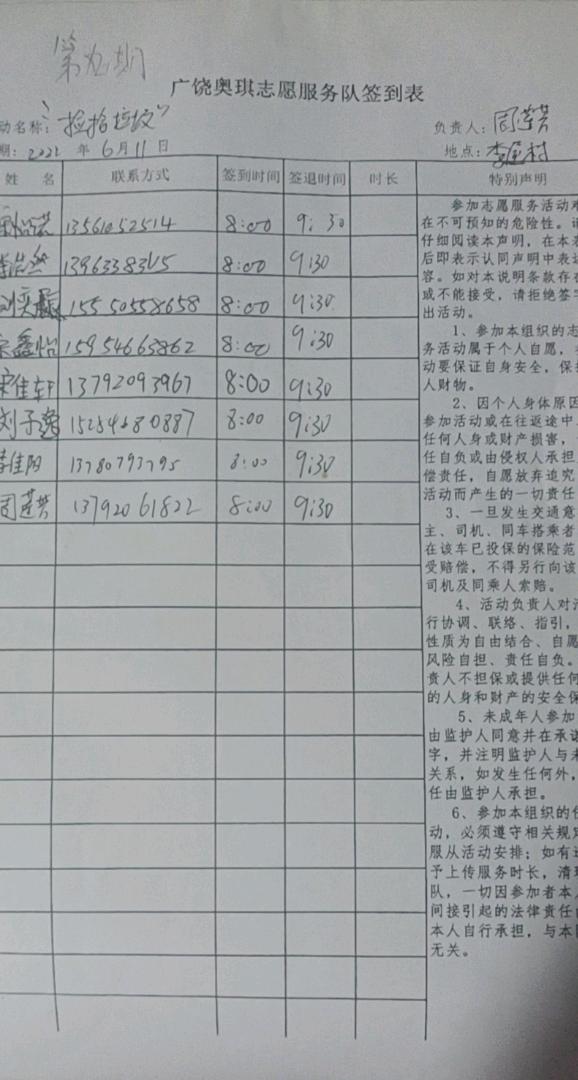 第九期
广饶奥琪志愿服务队签到表
动名称：“捡拾垃圾”
负责人：周莲芸
期：2022 年 6月11日
地点：李屋村
姓 名 联系方式 签到时间 签退时间 时长 特别声明
13561052514 8:00 9:30
李浩然 8:00 9:30
刘奕 15550558658 8:00 9:30
宋鑫怡 15954665862 8:00 9:30
宋佳轩 13792093967 8:00 9:30
刘子逸 15254680887 8:00 9:30
李佳阳 13780793795 8:00 9:30
周莲芸 13792061822 8:00 9:30
参加志愿服务活动难
在不可预知的危险性。请
仔细阅读本声明，在本表
后即表示认同声明中表述
容。如对本说明条款存在
或不能接受，请拒绝签字
出活动。
1、参加本组织的志
务活动属于个人自愿，
动要保证自身安全，保护
人财物。
2、因个人身体原因
参加活动或在往返途中
任何人身或财产损害，
任自负或由侵权人承担
偿责任，自愿放弃追究
活动而产生的一切责任
3、一旦发生交通意
主、司机、同车搭乘者
在该车已投保的保险范
受赔偿，不得另行向该
司机及同乘人索赔。
4、活动负责人对活
行协调、联络、指引，
性质为自由结合、自愿
风险自担、责任自负。
责人不担保或提供任何
的人身和财产的安全保
5、未成年人参加
由监护人同意并在承诺
字，并注明监护人与未
关系，如发生任何外，
任由监护人承担。
6、参加本组织的任
动，必须遵守相关规定
服从活动安排；如有违
予上传服务时长，清理
队，一切因参加者本人
间接引起的法律责任由
本人自行承担，与本队
无关。